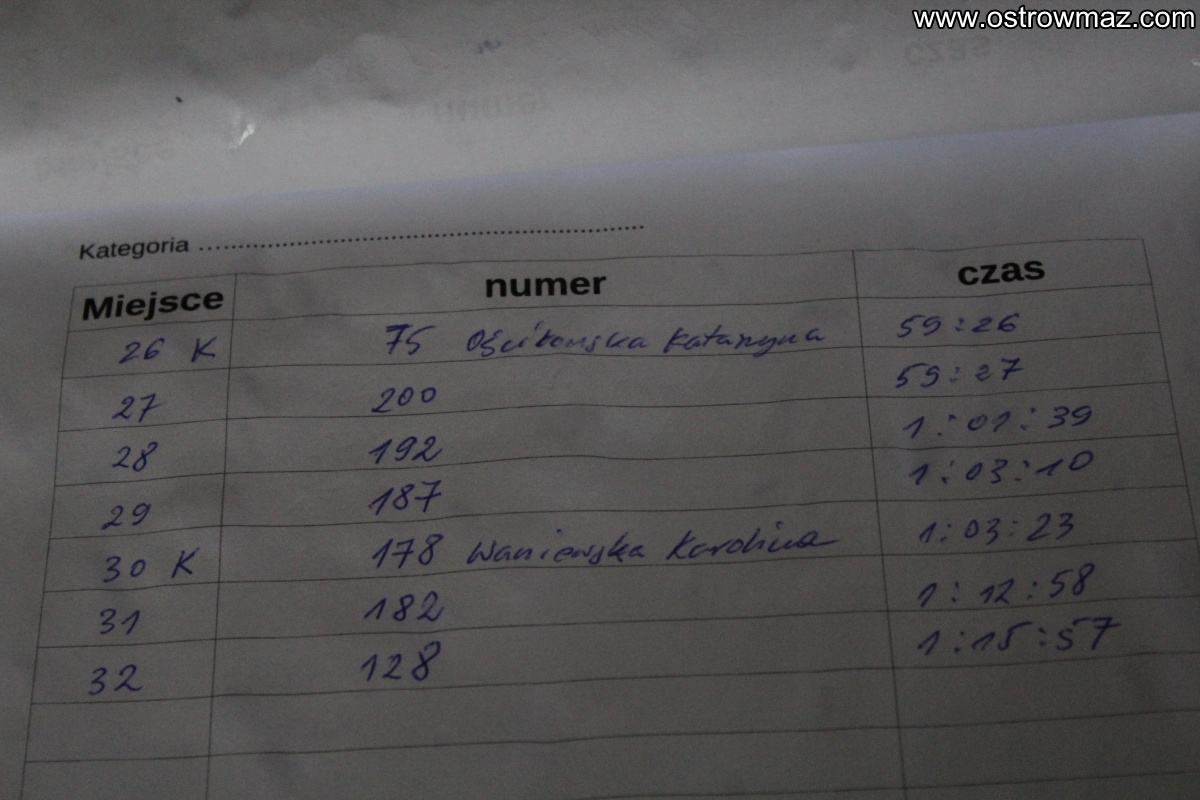 www.ostrowmaz.com
Kategoria ........................................................................
Miejsce numer czas
26 K 75 Katarzyna 59:26
27 200 59:27
28 192 1:01:39
29 187 1:03:10
30 K 178 Waniewska Karolina 1:03:23
31 182 1:12:58
32 128 1:15:57